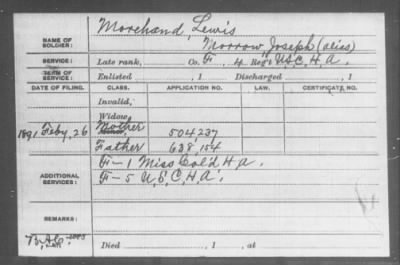 NAME OF SOLDIER: Morchand, Lewis
Morrow, Joseph (alias)
SERVICE: Late rank, Co. F, 4 Reg't U.S.C.H.A.
TERM OF SERVICE: Enlisted , 1 Discharged , 1
DATE OF FILING. CLASS. APPLICATION NO. LAW. CERTIFICATE NO.
Invalid,
Widow,
1891 Feby. 26 Mother 504237
Father 638,154
ADDITIONAL SERVICES: F-1 Miss Cold H.A.
F-5 U.S.C.H.A.
REMARKS:
Died , 1 , at